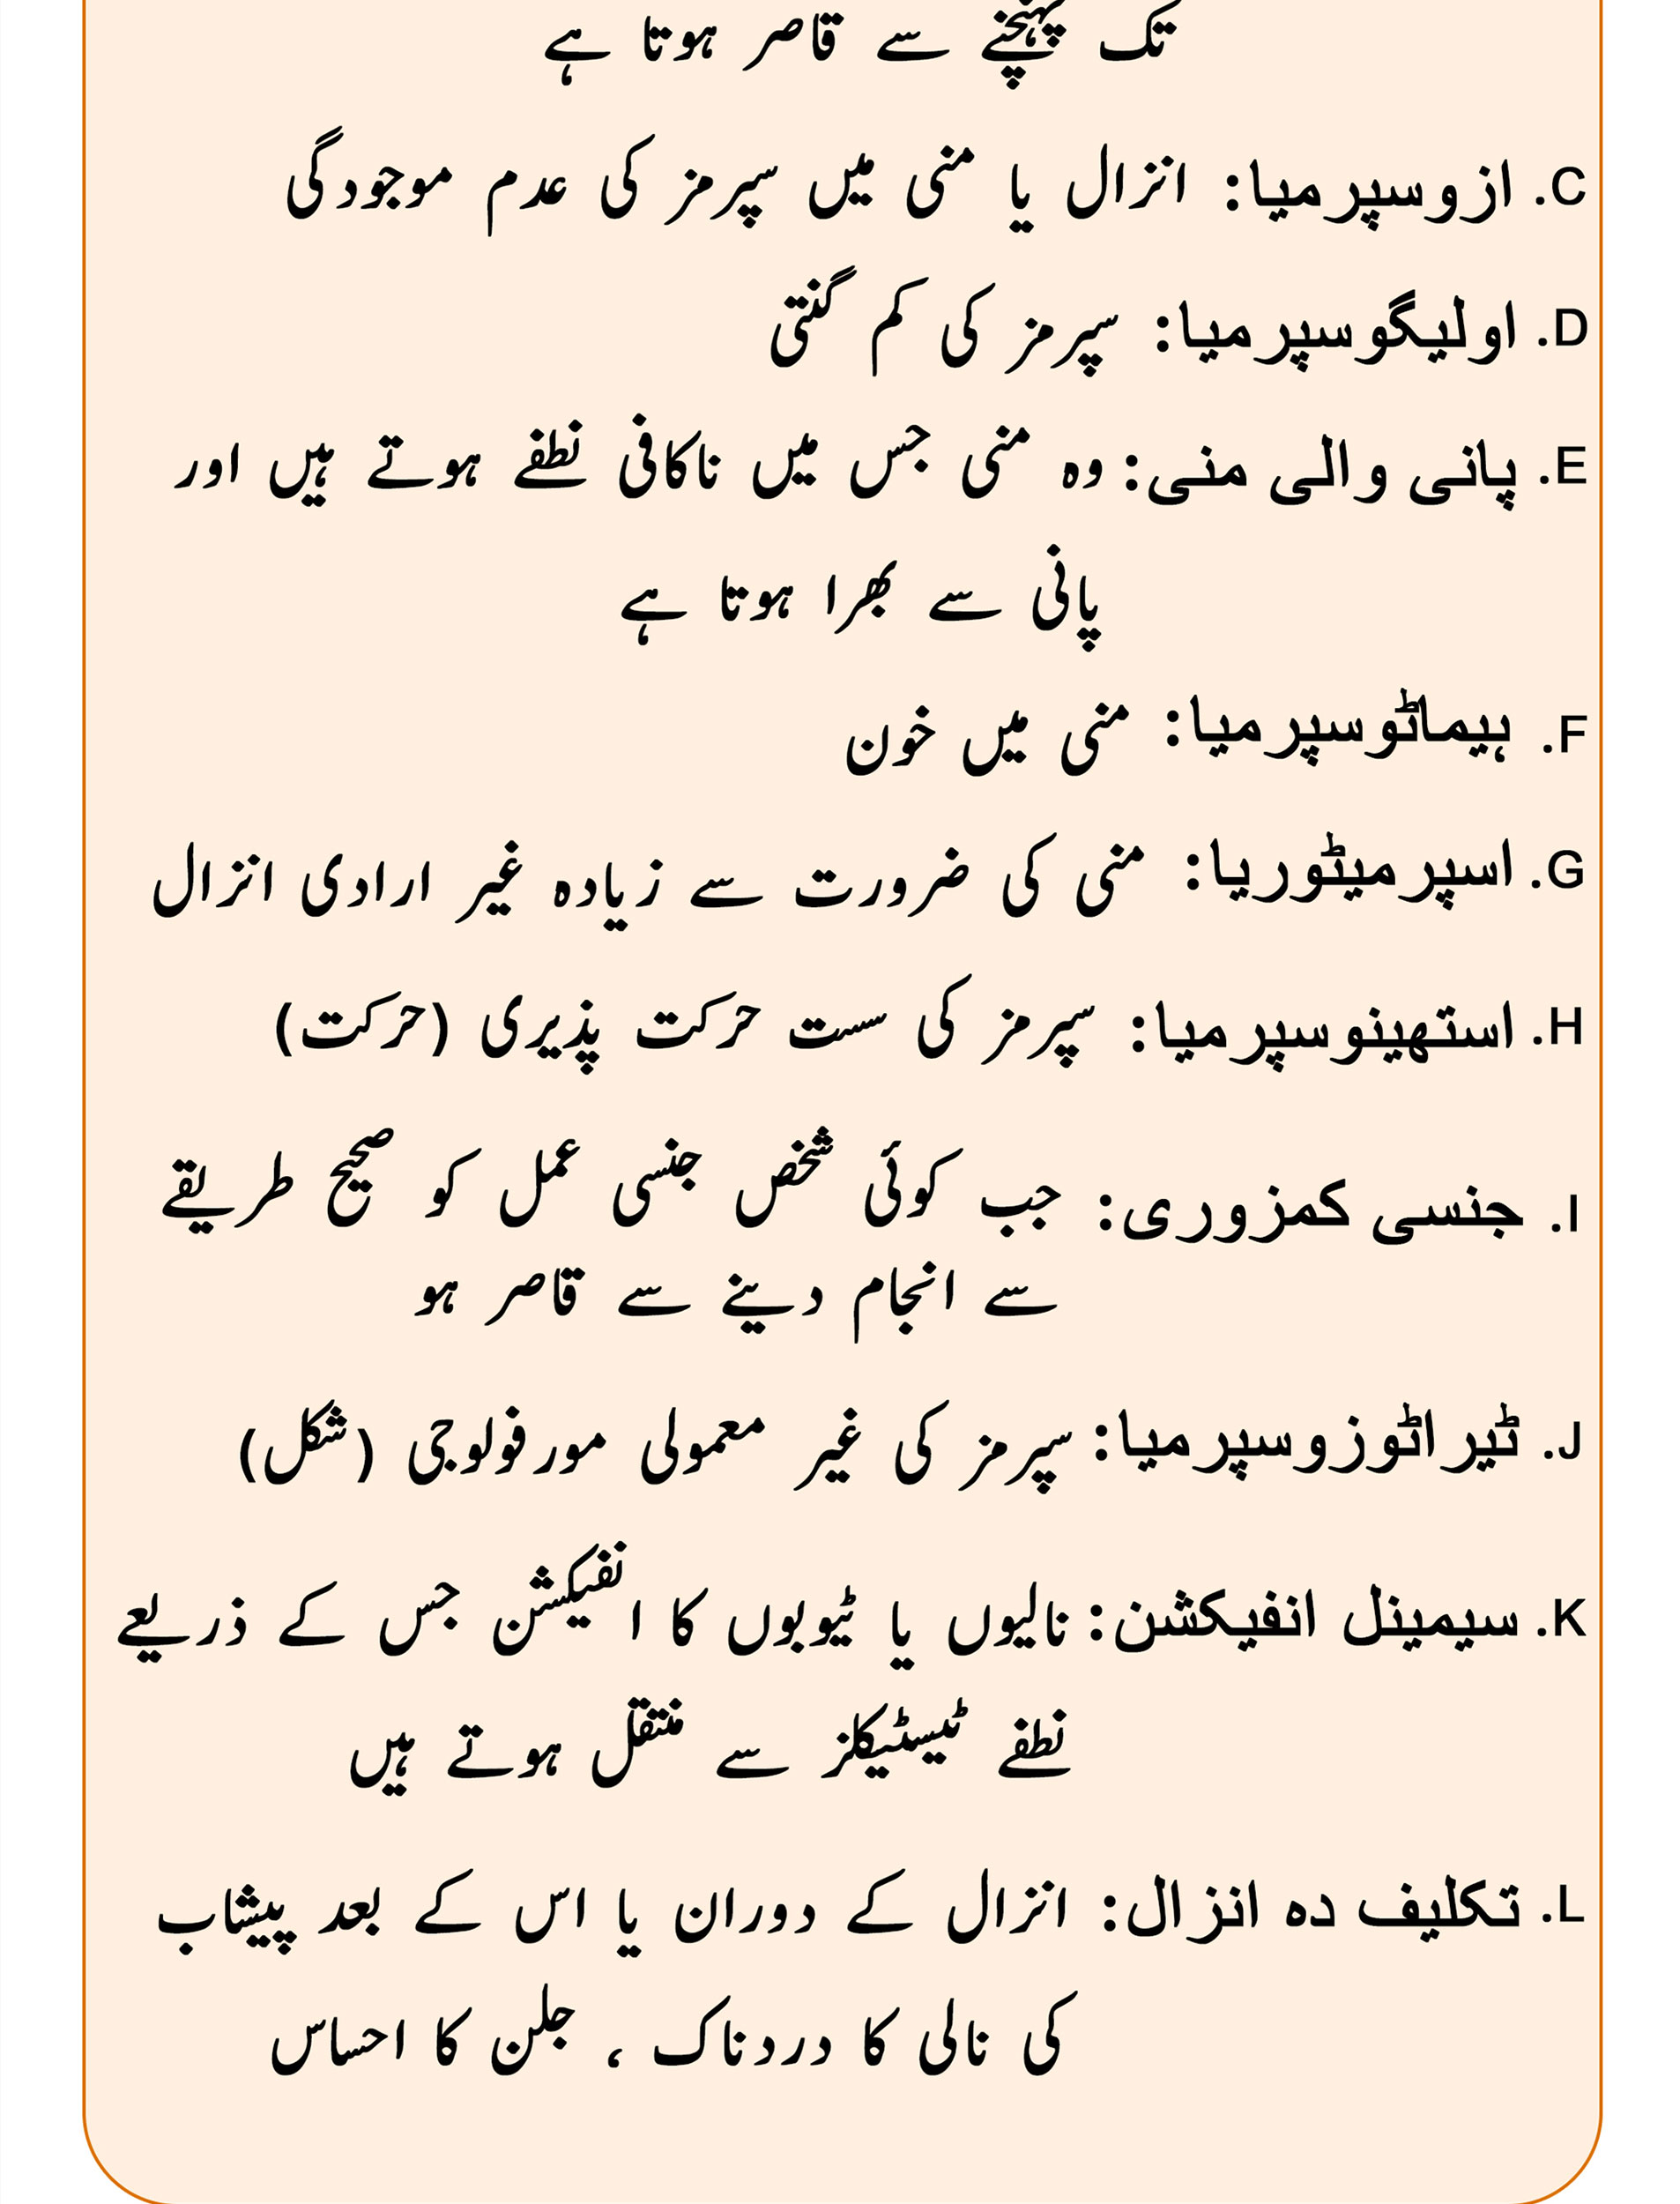 تک پہنچنے سے قاصر ہوتا ہے
C. ازوسپرمیا: انزال یا منی میں سپرمز کی عدم موجودگی
D. اولیگوسپرمیا: سپرمز کی کم گنتی
E. پانی والی منی: وہ منی جس میں ناکافی نطفے ہوتے ہیں اور
پانی سے بھرا ہوتا ہے
F. ہیماٹوسپرمیا: منی میں خون
G. اسپرمیٹوریا: منی کی ضرورت سے زیادہ غیر ارادی انزال
H. استھینوسپرمیا: سپرمز کی سست حرکت پذیری (حرکت)
I. جنسی کمزوری: جب کوئی شخص جنسی عمل کو صحیح طریقے
سے انجام دینے سے قاصر ہو
J. ٹیراٹوزوسپرمیا: سپرمز کی غیر معمولی مورفولوجی (شکل)
K. سیمینل انفیکشن: نالیوں یا ٹیوبوں کا انفیکشن جس کے ذریعے
نطفے ٹیسٹیکلز سے منتقل ہوتے ہیں
L. تکلیف دہ انزال: انزال کے دوران یا اس کے بعد پیشاب
کی نالی کا دردناک ، جلن کا احساس